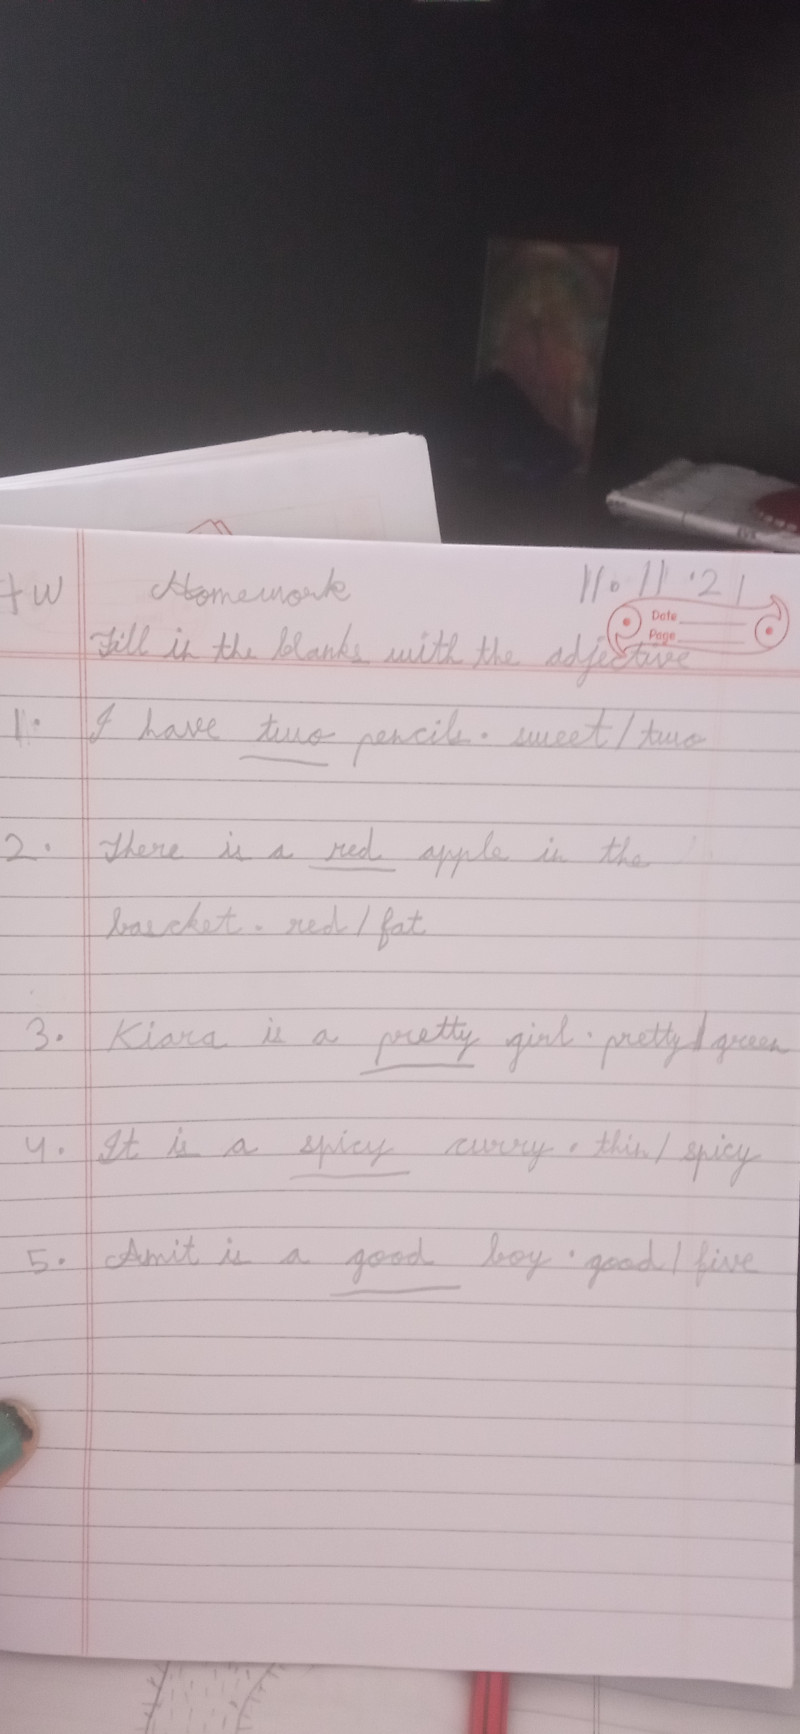 HW Homework 11.11.21
Date
Page
Fill in the blanks with the adjective
1. I have two pencils. sweet/two
2. There is a red apple in the
bascket. red/fat
3. Kiara is a pretty girl. pretty/green
4. It is a spicy curry. thin/spicy
5. Amit is a good boy. good/five